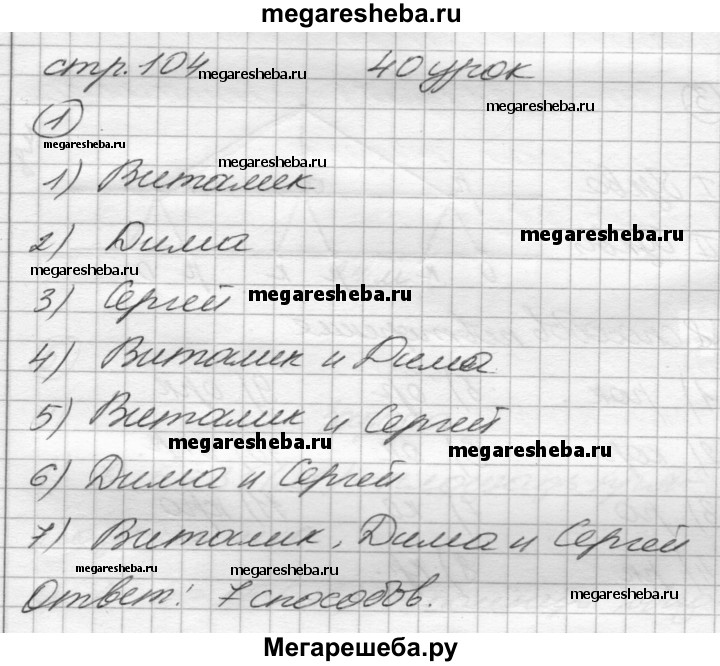 megaresheba.ru
стр. 104 megaresheba.ru 40 урок
megaresheba.ru
1
megaresheba.ru
megaresheba.ru
1) Виталик
megaresheba.ru
2) Дима
megaresheba.ru
3) Сергей megaresheba.ru
4) Виталик и Дима
5) Виталик и Сергей
megaresheba.ru
megaresheba.ru
6) Дима и Сергей
7) Виталик, Дима и Сергей
megaresheba.ru
megaresheba.ru
Ответ: 7 способов.
megaresheba.ru
Мегарешеба.ру